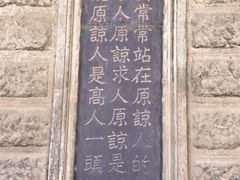 常常站在原諒人的
人原諒求人原諒是
原諒人是高人一頭